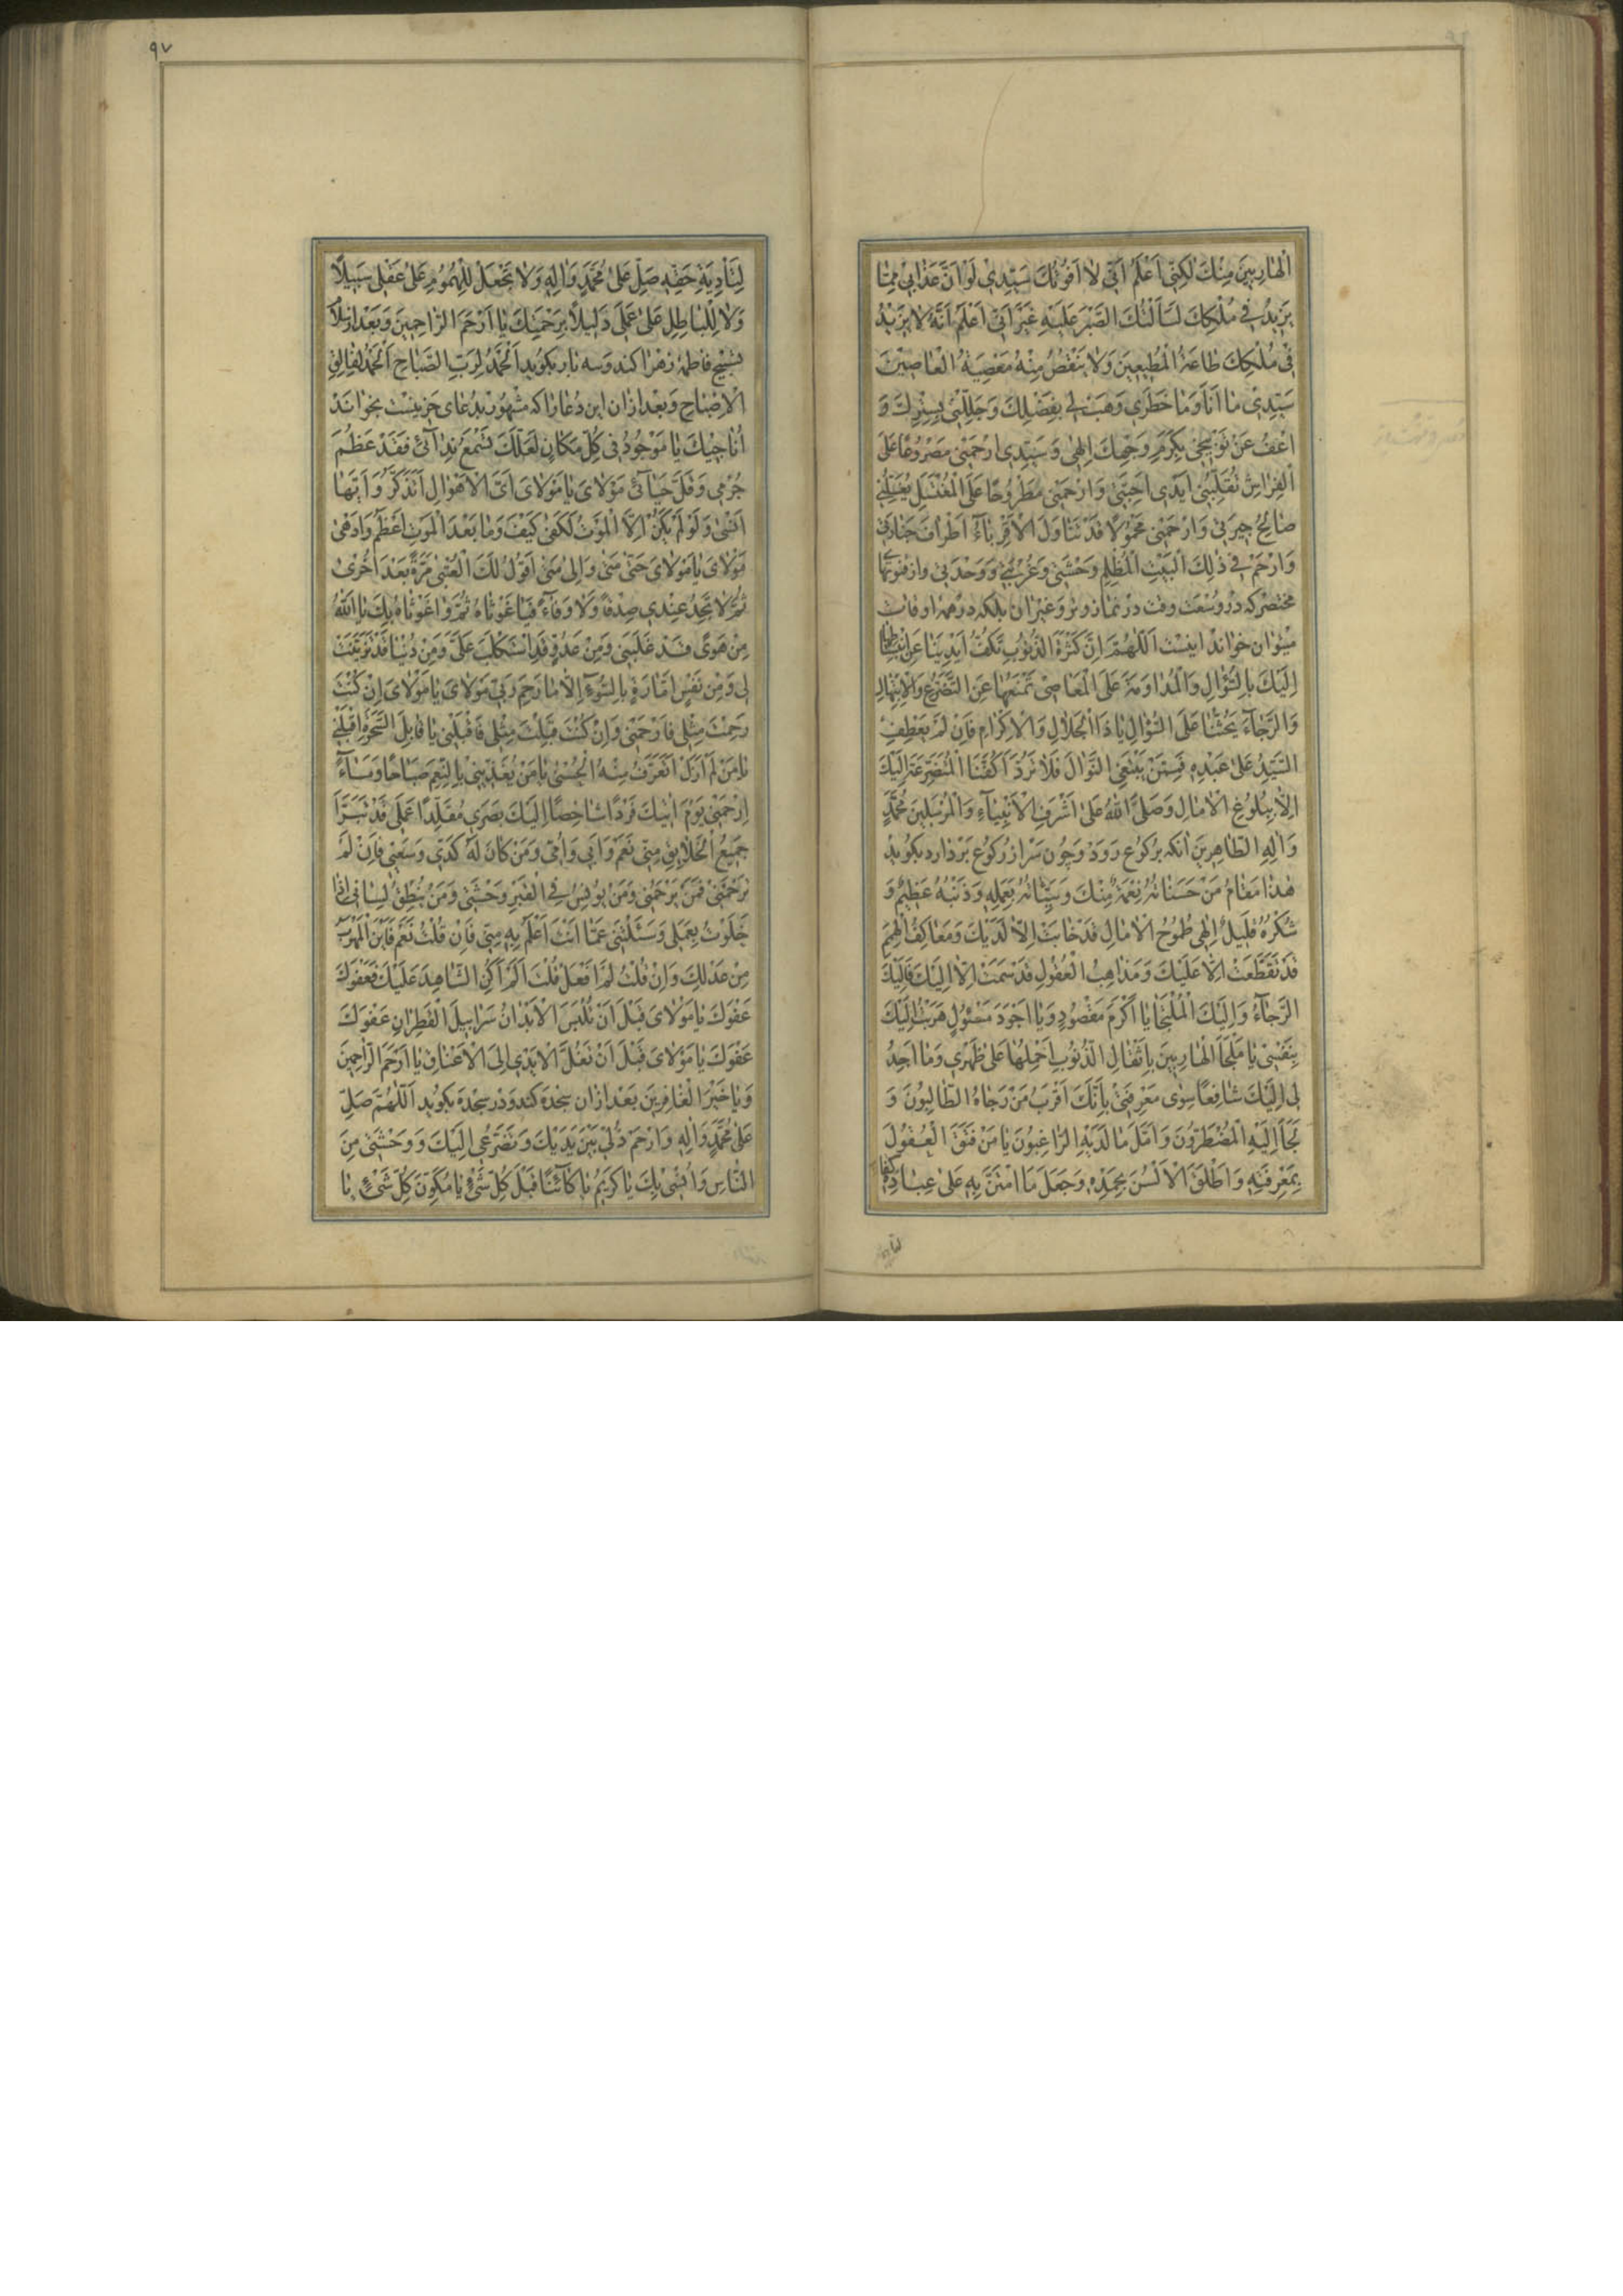 الْهَارِبِينَ مِنْكَ لَكِنّي اَعْلَمُ اَنّي لا اَفُوتُكَ سَيِّدِي لَوْ اَنَّ عَذَابِي مِمَّا
يَزِيدُ فِي مُلْكِكَ لَسَاَلْتُكَ الصَّبْرَ عَلَيْهِ غَيْرَ اَنّي اَعْلَمُ اَنَّهُ لا يَزِيدُ
فِي مُلْكِكَ طَاعَةُ الْمُطِيعِينَ وَلا يَنْقُصُ مِنْهُ مَعْصِيَةُ الْعَاصِينَ
سَيِّدِي مَا اَنَا وَمَا خَطَرِي وَهَبْ لِي بِفَضْلِكَ وَجَلِّلْنِي بِسِتْرِكَ وَ
اعْفُ عَنْ تَوْبِيخِي بِكَرَمِ وَجْهِكَ اِلهِي وَسَيِّدِي ارْحَمْنِي مَصْرُوعًا عَلَى
الْفِرَاشِ تُقَلِّبُنِي اَيْدِي اَحِبَّتِي وَارْحَمْنِي مَطْرُوحًا عَلَى الْمُغْتَسَلِ يُغَسِّلُنِي
صَالِحُ جِيرَتِي وَارْحَمْنِي مَحْمُولًا قَدْ تَنَاوَلَ الْاَقْرِبَاءُ اَطْرَافَ جَنَازَتِي
وَارْحَمْ فِي ذلِكَ الْبَيْتِ الْمُظْلِمِ وَحْشَتِي وَغُرْبَتِي وَوَحْدَتِي وازقنوتها
مختصر که در وسعت وقت در نماز وتر و غیر ان بلکه در همه اوقات
میتوان خواند اینست اَللّهُمَّ اِنَّ كَثْرَةَ الذُّنُوبِ تَكُفُّ اَيْدِيَنَا عَنِ انْبِسَاطِهَا
اِلَيْكَ بِالسُّؤَالِ وَالْمُدَاوَمَةَ عَلَى الْمَعَاصِي تَمْنَعُهَا عَنِ التَّضَرُّعِ وَالْاِبْتِهَالِ
وَالرَّجَاءَ يَحُثُّنَا عَلَى السُّؤَالِ يَا ذَا الْجَلَالِ وَالْاِكْرَامِ فَاِنْ لَمْ يَعْطِفِ
السَّيِّدُ عَلَى عَبْدِهِ فَمِمَّنْ يَبْتَغِي النَّوَالَ فَلَا تَرُدَّ اَكُفَّنَا الْمُتَضَرِّعَةَ اِلَيْكَ
اِلّا بِبُلُوغِ الْامَالِ وَصَلَّى اللهُ عَلَى اَشْرَفِ الْاَنْبِيَاءِ وَالْمُرْسَلِينَ مُحَمَّدٍ
وَالِهِ الطَّاهِرِينَ آنکه برکوع رود و چون سر از رکوع بردارد بکوید
هذَا مَقَامُ مَنْ حَسَنَاتُهُ نِعْمَةٌ مِنْكَ وَسَيِّئَاتُهُ بِعَمَلِهِ وَذَنْبُهُ عَظِيمٌ وَ
شُكْرُهُ قَلِيلٌ اِلهِي طُمُوحُ الْامَالِ قَدْ خَابَتْ اِلّا لَدَيْكَ وَمَعَاكِفُ الْهِمَمِ
قَدْ تَقَطَّعَتْ اِلّا عَلَيْكَ وَمَذَاهِبُ الْعُقُولِ قَدْ سَمَتْ اِلّا اِلَيْكَ فَاِلَيْكَ
الرَّجَاءُ وَاِلَيْكَ الْمُلْتَجَا يَا اَكْرَمَ مَقْصُودٍ وَيَا اَجْوَدَ مَسْئُولٍ هَرَبْتُ اِلَيْكَ
بِنَفْسِي يَا مَلْجَاَ الْهَارِبِينَ بِاَثْقَالِ الذُّنُوبِ اَحْمِلُهَا عَلَى ظَهْرِي وَمَا اَجِدُ
لِي اِلَيْكَ شَافِعًا سِوَى مَعْرِفَتِي بِاَنَّكَ اَقْرَبُ مَنْ رَجَاهُ الطَّالِبُونَ وَ
لَجَاَ اِلَيْهِ الْمُضْطَرُّونَ وَاَمَّلَ مَا لَدَيْهِ الرَّاغِبُونَ يَا مَنْ فَتَقَ الْعُقُولَ
بِمَعْرِفَتِهِ وَاَطْلَقَ الْاَلْسُنَ بِحَمْدِهِ وَجَعَلَ مَا امْتَنَّ بِهِ عَلَى عِبَادِهِ كِفَاءً
لتأدية
٩٧
لِتَاْدِيَةِ حَقِّهِ صَلِّ عَلَى مُحَمَّدٍ وَالِهِ وَلا تَجْعَلْ لِلْهُمُومِ عَلَى عَقْلِي سَبِيلاً
وَلا لِلْبَاطِلِ عَلَى عَمَلِي دَلِيلاً بِرَحْمَتِكَ يَا اَرْحَمَ الرَّاحِمِينَ وَبعد از سلام
تسبیح فاطمه زهرا کند و سه بار بکوید اَلْحَمْدُ لِرَبِّ الصَّبَاحِ اَلْحَمْدُ لِفَالِقِ
الْاِصْبَاحِ وبعد از ان این دعا را که مشهور بدعای حزینست بخواند
اُنَاجِيكَ يَا مَوْجُودُ فِي كُلِّ مَكَانٍ لَعَلَّكَ تَسْمَعُ نِدَائِي فَقَدْ عَظُمَ
جُرْمِي وَقَلَّ حَيَائِي مَوْلَايَ يَا مَوْلَايَ اَيَّ الْاَهْوَالِ اَتَذَكَّرُ وَاَيَّهَا
اَنْسَى وَلَوْ لَمْ يَكُنْ اِلَّا الْمَوْتُ لَكَفَى كَيْفَ وَمَا بَعْدَ الْمَوْتِ اَعْظَمُ وَاَدْهَى
مَوْلَايَ يَا مَوْلَايَ حَتَّى مَتَى وَاِلَى مَتَى اَقُولُ لَكَ الْعُتْبَى مَرَّةً بَعْدَ اُخْرَى
ثُمَّ لَا تَجِدُ عِنْدِي صِدْقًا وَلَا وَفَاءً فَيَا غَوْثَاهُ ثُمَّ وَاغَوْثَاهُ بِكَ يَا اَللهُ
مِنْ هَوًى قَدْ غَلَبَنِي وَمِنْ عَدُوٍّ قَدِ اسْتَكْلَبَ عَلَيَّ وَمِنْ دُنْيَا قَدْ تَزَيَّنَتْ
لِي وَمِنْ نَفْسٍ اَمَّارَةٍ بِالسُّوءِ اِلَّا مَا رَحِمَ رَبِّي مَوْلَايَ يَا مَوْلَايَ اِنْ كُنْتَ
رَحِمْتَ مِثْلِي فَارْحَمْنِي وَاِنْ كُنْتَ قَبِلْتَ مِثْلِي فَاقْبَلْنِي يَا قَابِلَ السَّحَرَةِ اقْبَلْنِي
يَا مَنْ لَمْ اَزَلْ اَتَعَرَّفُ مِنْهُ الْحُسْنَى يَا مَنْ يُغَذِّينِي بِالنِّعَمِ صَبَاحًا وَمَسَاءً
اِرْحَمْنِي يَوْمَ اتِيكَ فَرْدًا شَاخِصًا اِلَيْكَ بَصَرِي مُقَلَّدًا عَمَلِي قَدْ تَبَرَّاَ
جَمِيعُ الْخَلَائِقِ مِنِّي نَعَمْ وَاَبِي وَاُمِّي وَمَنْ كَانَ لَهُ كَدِّي وَسَعْيِي فَاِنْ لَمْ
تَرْحَمْنِي فَمَنْ يَرْحَمُنِي وَمَنْ يُونِسُ فِي الْقَبْرِ وَحْشَتِي وَمَنْ يُنْطِقُ لِسَانِي اِذَا
خَلَوْتُ بِعَمَلِي وَسَئَلْتَنِي عَمَّا اَنْتَ اَعْلَمُ بِهِ مِنِّي فَاِنْ قُلْتُ نَعَمْ فَاَيْنَ الْمَهْرَبُ
مِنْ عَدْلِكَ وَاِنْ قُلْتُ لَمْ اَفْعَلْ قُلْتَ اَلَمْ اَكُنِ الشَّاهِدَ عَلَيْكَ فَعَفْوَكَ
عَفْوَكَ يَا مَوْلَايَ قَبْلَ اَنْ تُلْبَسَ الْاَبْدَانُ سَرَابِيلَ الْقَطِرَانِ عَفْوَكَ
عَفْوَكَ يَا مَوْلَايَ قَبْلَ اَنْ تُغَلَّ الْاَيْدِي اِلَى الْاَعْنَاقِ يَا اَرْحَمَ الرَّاحِمِينَ
وَيَا خَيْرَ الْغَافِرِينَ بعد از ان سجده کند و در سجده بکوید اَللّهُمَّ صَلِّ
عَلَى مُحَمَّدٍ وَالِهِ وَارْحَمْ ذُلِّي بَيْنَ يَدَيْكَ وَتَضَرُّعِي اِلَيْكَ وَوَحْشَتِي مِنَ
النَّاسِ وَاُنْسِي بِكَ يَا كَرِيمُ يَا كَائِنًا قَبْلَ كُلِّ شَيْءٍ يَا مُكَوِّنَ كُلِّ شَيْءٍ يَا